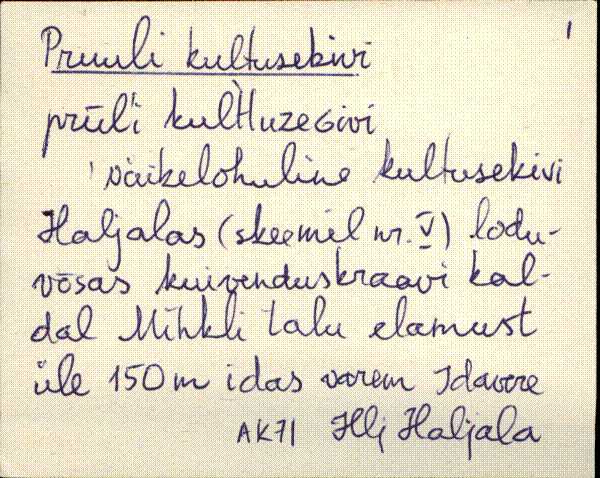 Pruuli kultusekivi
1
prūli kulʹttuzeGivi
väikelohuline kultusekivi
Haljalas (skeemil nr. V) lodu-
võsas kuivenduskraavi kal-
dal Mihkli talu elamust
üle 150 m idas varem Idavere
AK71 Hlj Haljala